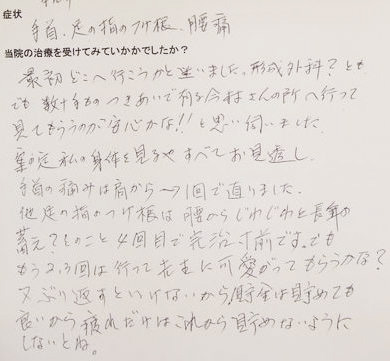 症状
手首、足の指のつけ根、腰痛
当院の治療を受けてみていかかでしたか？
最初どこへ行こうかと迷いました。形成外科？とも
でも数十年のつきあいで有る今村さんの所へ行って
見てもらうのが安心かな!!と思い伺いました。
案の定私の身体を見るやすべてお見透し。
手首の痛みは肩から→1回で直りました。
他足の指のつけ根は腰からじわじわと長年の
蓄え？とのこと4回目で完治寸前です。でも
もう2,3回は行って先生に可愛がってもらうかな？
又ぶり返すといけないから、貯金は貯めても
良いから疲れだけはこれから貯めないように
しないとね。